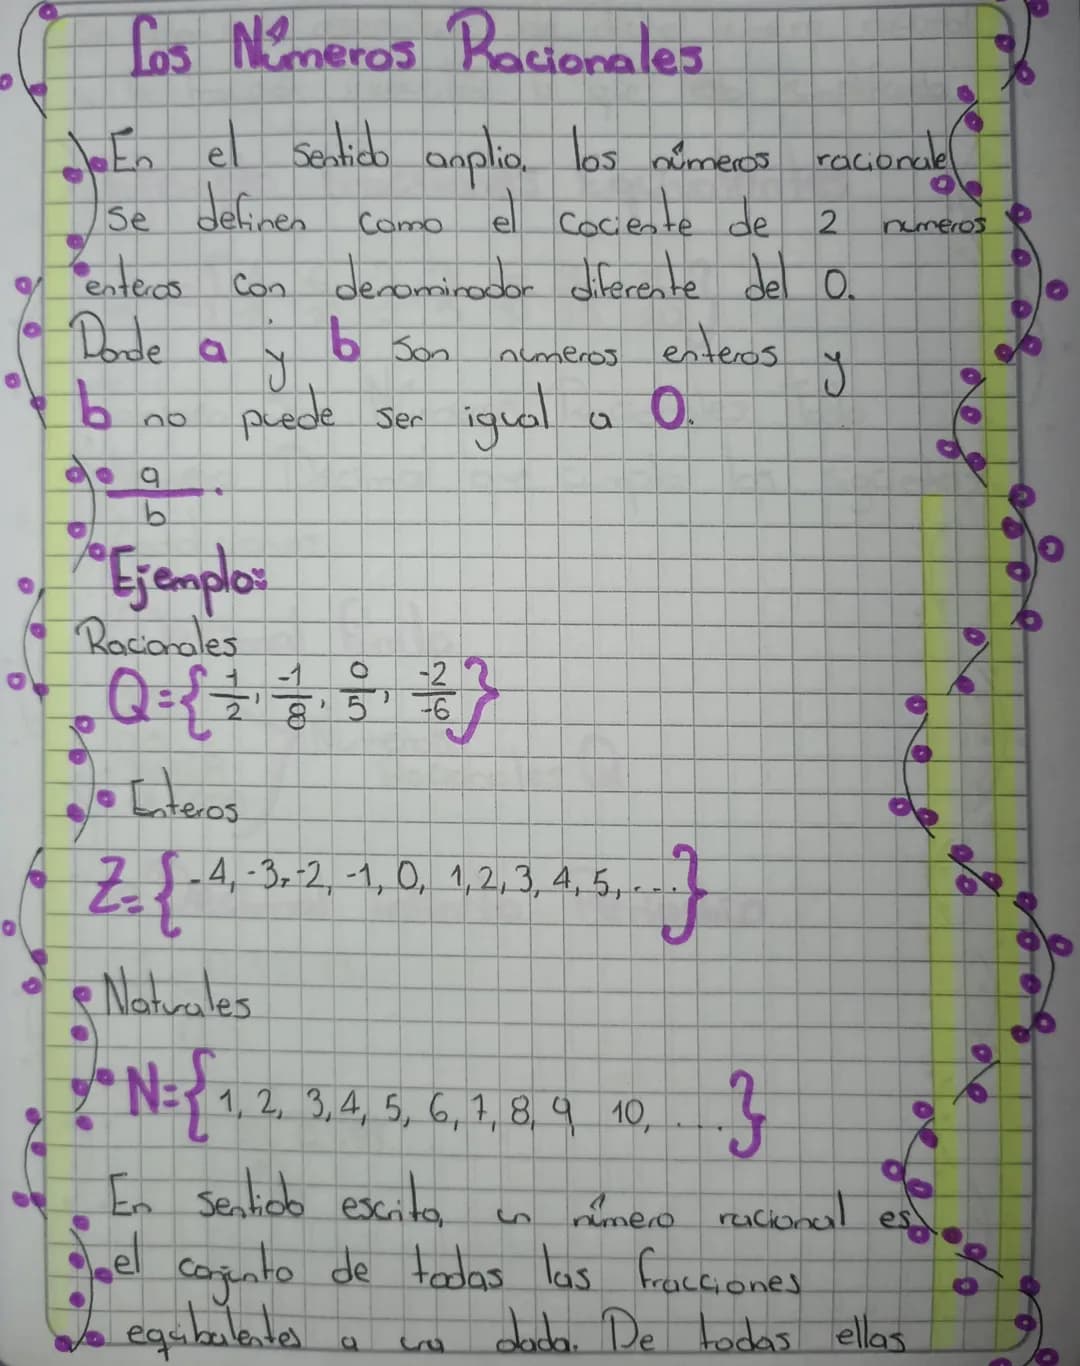 Los Números Racionales
En el sentido anplio, los números racionale
se definen como el cociente de 2 numeros
enteros con denominador diferente del 0.
Donde a y b son numeros enteros y
b no puede ser igual a 0.
a
b
Ejemplo:
Racionales
Q={1/2, -1/8, 0/5, -2/-6}
Enteros
Z={-4, -3, -2, -1, 0, 1, 2, 3, 4, 5, ...}
Naturales
N={1, 2, 3, 4, 5, 6, 7, 8, 9 10, ....}
En sentido escrito, un número racional es
el conjunto de todas las fracciones
equibalentes a una dada. De todas ellas